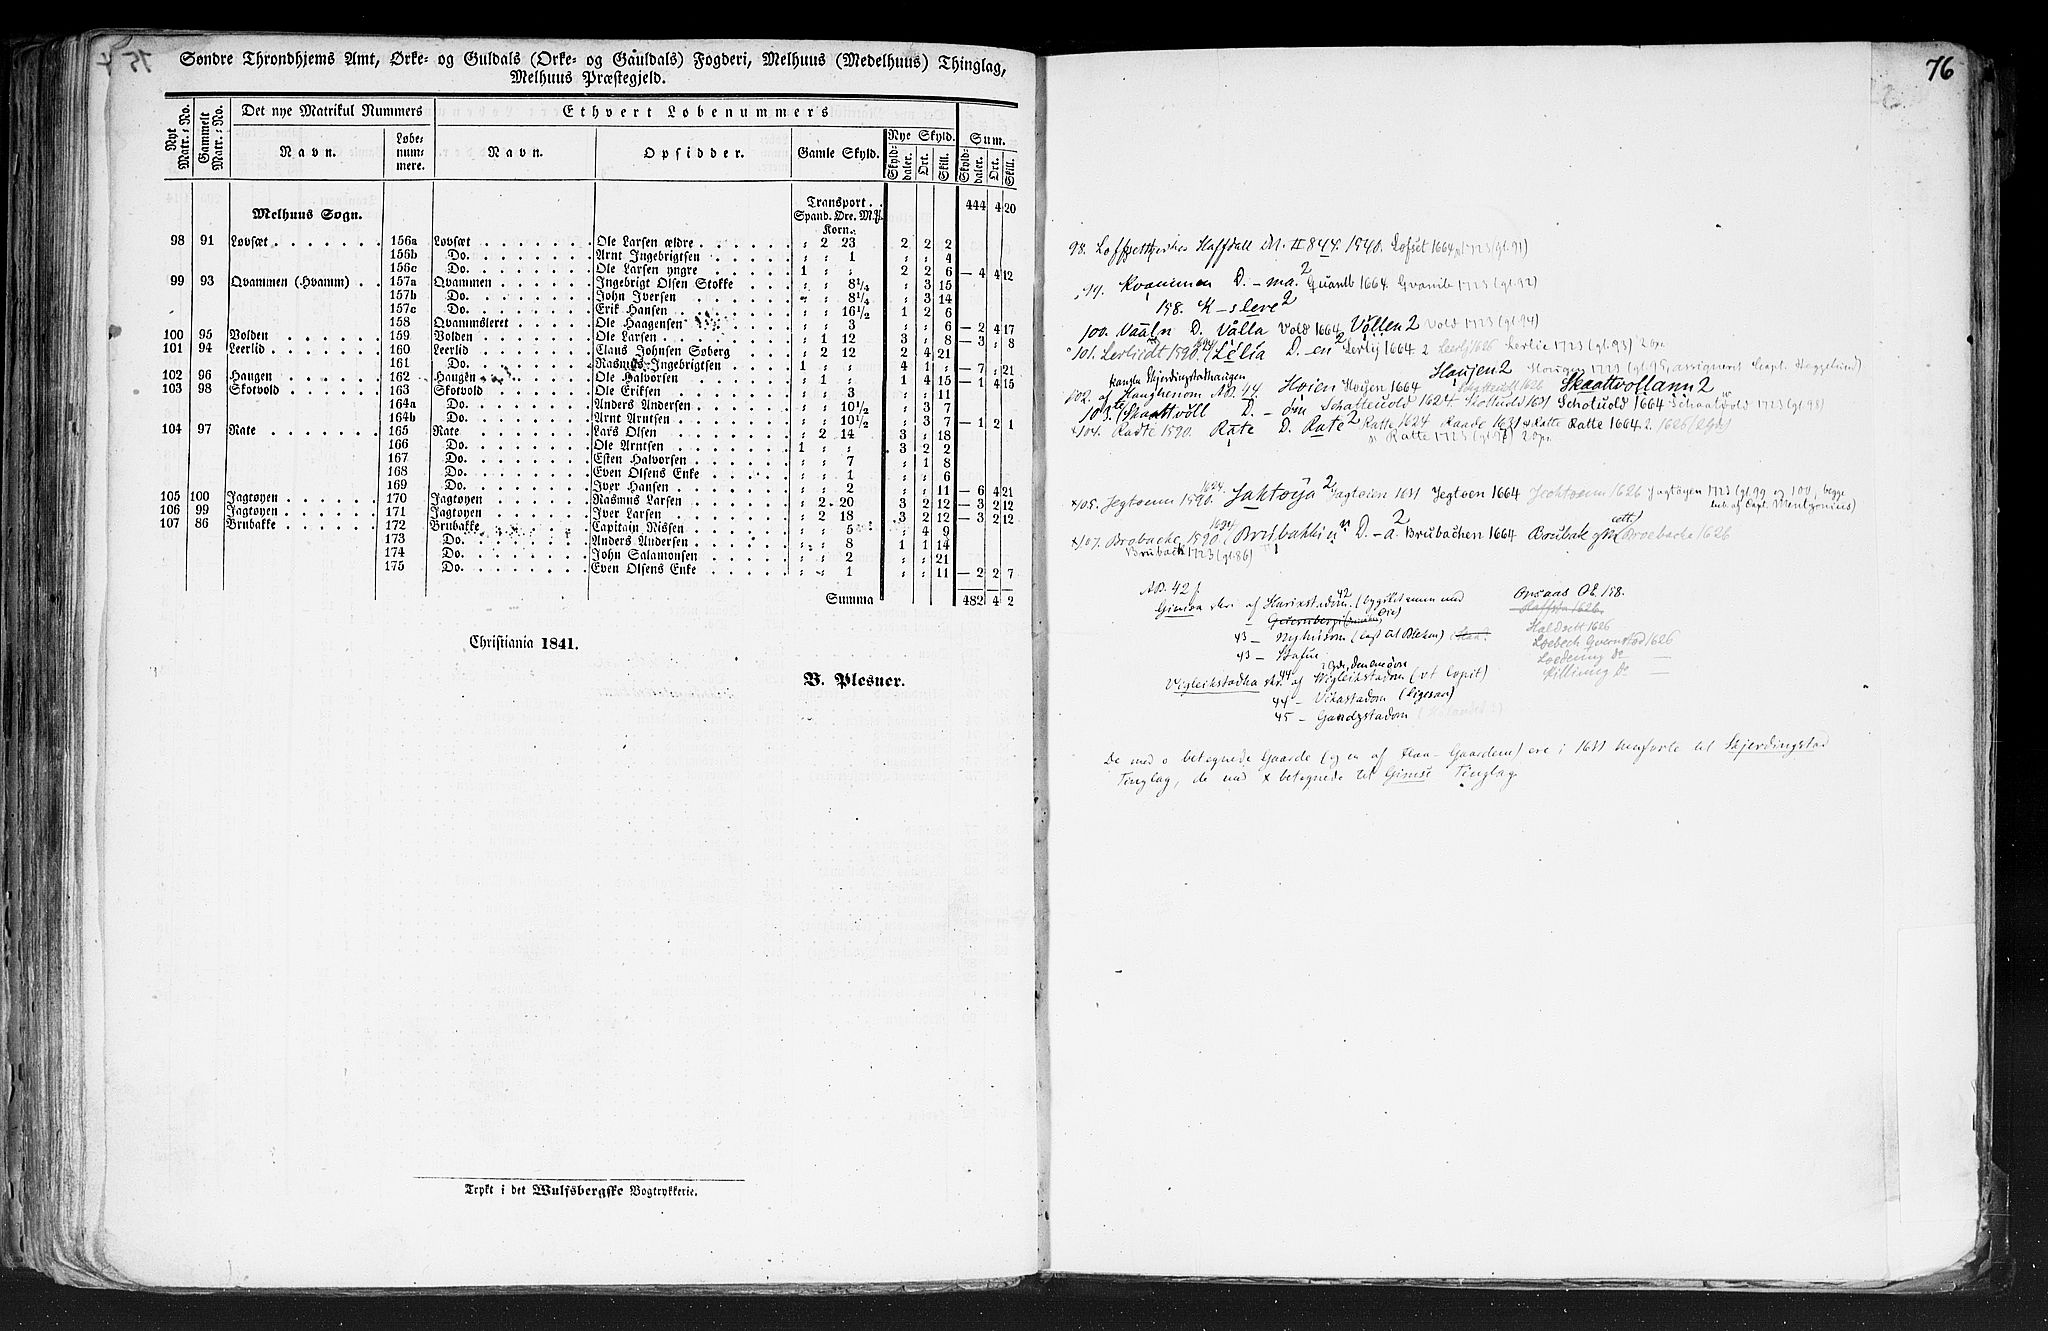 Søndre Throndhjems Amt, Ørke- og Guldals (Orke- og Gauldals) Fogderi, Melhuus (Medelhuus) Thinglag,
Melhuus Præstegjeld.
Nye Matr.-No. Gammelt Matr.-No. Det nye Matrikul Nummers Ethvert Løbenummers
Navn. Løbenummere. Navn. Opsidder. Gamle Skyld. Nye Skyld. Skylddaler. Ort. Skill. Sum. Skylddaler. Ort. Skill.
Melhuus Sogn. Transport. 444 4 20
Spand. Øre. M.ß.
Korn.
98 91 Lovsæt 156a Lovsæt Ole Larsen ældre „ 2 23 2 2 2
156b Do. Arnt Ingebrigtsen „ „ 1 „ „ 4
156c Do. Ole Larsen yngre 1 „ „ 2 2 6 — 4 4 12
99 93 Qvammen (Hvamm) 157a Qvammen Ingebrigt Olsen Stokke „ „ 8 1/4 „ 3 15
157b Do. John Iversen „ „ 8 1/4 „ 3 14
157c Do. Erik Hansen „ „ 16 1/2 1 2 6
158 Qvammsleret Ole Haagensen „ „ 3 „ „ 6 — 2 4 17
100 95 Volden 159 Volden Ole Larsen „ 1 12 3 „ 8 — 3 „ 8
101 94 Leerlid 160 Leerlid Claus Johnsen Søberg „ 2 12 2 4 21
161 Do. Rasmus Ingebrigtsen 1 „ „ 4 1 „ — 7 „ 21
102 96 Haugen 162 Haugen Ole Halvorsen „ 1 „ 1 4 15 — 1 4 15
103 98 Skotvold 163 Skotvold Ole Eriksen „ „ 3 „ „ 11
164a Do. Anders Andersen „ „ 10 1/2 „ 3 7
164b Do. Arnt Arntsen „ „ 10 1/2 „ 3 7 — 1 2 1
104 97 Rate 165 Rate Lars Olsen „ 2 14 3 „ 18
166 Do. Ole Arntsen 1 „ „ 3 2 2
167 Do. Esten Halvorsen „ „ 7 „ 1 8
168 Do. Even Olsens Enke „ „ 1 „ „ 6
169 Do. Iver Hansen „ „ 2 „ „ 11 — 6 4 21
105 100 Jagtøyen 170 Jagtøyen Rasmus Larsen „ 2 20 3 2 12 — 3 2 12
106 99 Jagtøyen 171 Jagtøyen Iver Larsen „ 2 18 3 2 12 — 3 2 12
107 86 Brubakke 172 Brubakke Capitain Nissen „ „ 5 „ 4 9
173 Do. Anders Andersen „ „ 8 1 1 14
174 Do. John Salamonsen „ „ 2 „ „ 21
175 Do. Even Olsens Enke „ „ 1 „ „ 11 — 2 2 7
Summa 482 4 2
Christiania 1841.
V. Plesner.
Trykt i det Wulfsbergske Bogtrykkerie.
76
DN. II 847. 1540. Lofset 1664 1723 (gl. 91)
Kvammen D. - ma. 2 Quamb 1664 Gvamb 1723 (gl. 92)
158. K - slere 2
100. D. Välla Vold 1664 Vollen 2 Vold 1723 (gl. 94)
101. Lerliidt 1590. Lelia D. - en 2 Lerlij 1664 2 Leerlj 1626 Lerlie 1723 (gl. 93) 2 opr.
kanske Skjerdingstadhaugen Haujen 2 Hougen 1723
102. af Haughenom AB. 44. Høien 1664 Skaattvollann 2
103. Skaattvoll D. - än Schatteuold 1624. 1631 Scholuold 1664 1723 (gl. 98)
104. Radte 1590. Rate D. Rate 2 Ratte 1624 Raade 1631 Ratte 1664. 2. 1626
Ratte 1723 2 opr.
105. Jegtoenn 1590. 1624. Jahtøja 2 Jagtøien 1631 Jegtoen 1664 1626 Jagtøyen 1723 (gl. 99 og 100, begge
Capt. Mentzonius)
107. Brobache 1590. 1624 D. - a. 2 Brubachen 1664 Brubak Broebacke 1626
Brubach 1723 (gl. 86)
AB. 42
Gimisa skr. af 42 (bygslet sammen med
43 — (lagt til Blekan)
43 — Stafne
Vigleikstadha skr. af 44 Wigleikstadom (vt copit)
44 — Vikastadom (ligesaa)
45 — Gandzstadom
Onsaas OE 158.
Haffsta 1626.
Haldsett 1626
Loebech Gvernstad 1626
De med o betegnede Gaarde (og en af Flaa-Gaardene) ere i 1631 henførte til Skjerdingstad
Tinglag, de med x betegnede til Gimse Tinglag